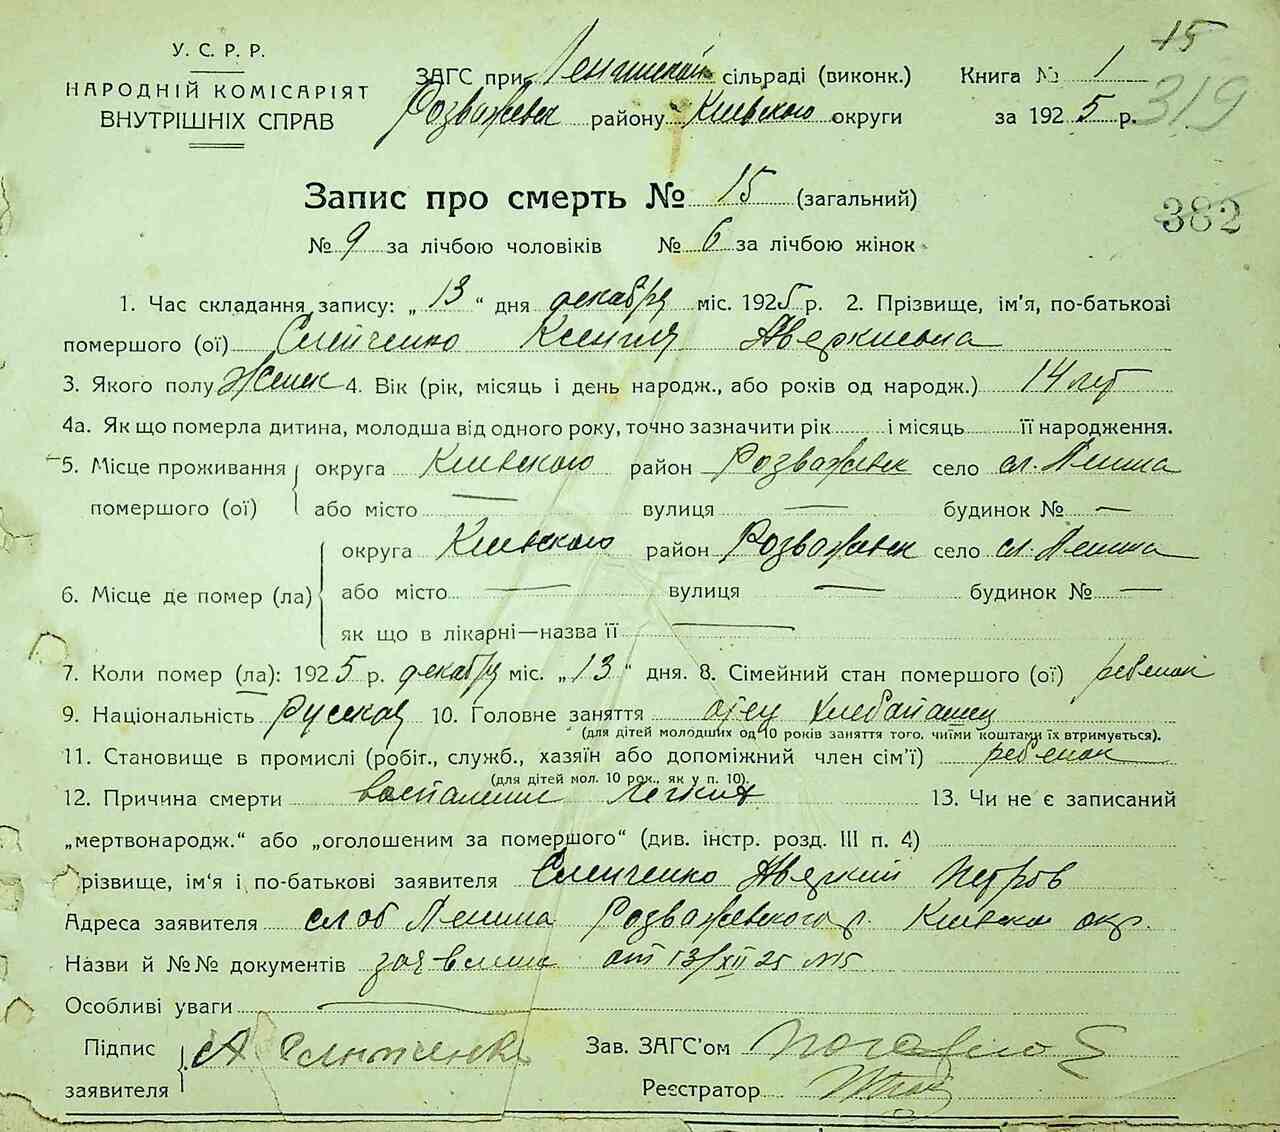 15
У. С. Р. Р.
НАРОДНІЙ КОМІСАРІЯТ
ВНУТРІШНІХ СПРАВ
ЗАГС при Ленинской сільраді (виконк.) Книга № 1
319
Розважевск району Киевского округи за 1925 р.
Запис про смерть № 15 (загальний)
382
№ 9 за лічбою чоловіків № 6 за лічбою жінок
1. Час складання запису: „13“ дня декабря міс. 1925 р. 2. Прізвище, ім'я, по-батькові
помершого (ої) Аверкиевна
3. Якого полу Женск 4. Вік (рік, місяць і день народж., або років од народж.) 14 лет
4а. Як що померла дитина, молодша від одного року, точно зазначити рік і місяць її народження.
5. Місце проживання округа Киевского район Розважевск село сл. Ленина
помершого (ої) або місто — вулиця — будинок № —
округа Киевского район Розважевск село сл. Ленина
6. Місце де помер (ла) або місто — вулиця — будинок № —
як що в лікарні—назва її —
7. Коли помер (ла): 1925 р. декабря міс. „13“ дня. 8. Сімейний стан помершого (ої) ребенок
9. Національність Русская 10. Головне заняття отец хлебопашец
(для дітей молодших од 10 років заняття того, чиїми коштами їх втримується).
11. Становище в промислі (робіт., служб., хазяїн або допоміжний член сім'ї) ребенок
(для дітей мол. 10 рок., як у п. 10).
12. Причина смерти воспаление легких 13. Чи не є записаний
„мертвонародж.“ або „оголошеним за помершого“ (див. інстр. розд. III п. 4)
різвище, ім'я і по-батькові заявителя Аверкий Петров
Адреса заявителя слоб Ленина Розважевского р. Киевск окр.
Назви й №№ документів от 13/XII 25 №15
Особливі уваги —
Підпис
заявителя
Зав. ЗАГС'ом
Реєстратор